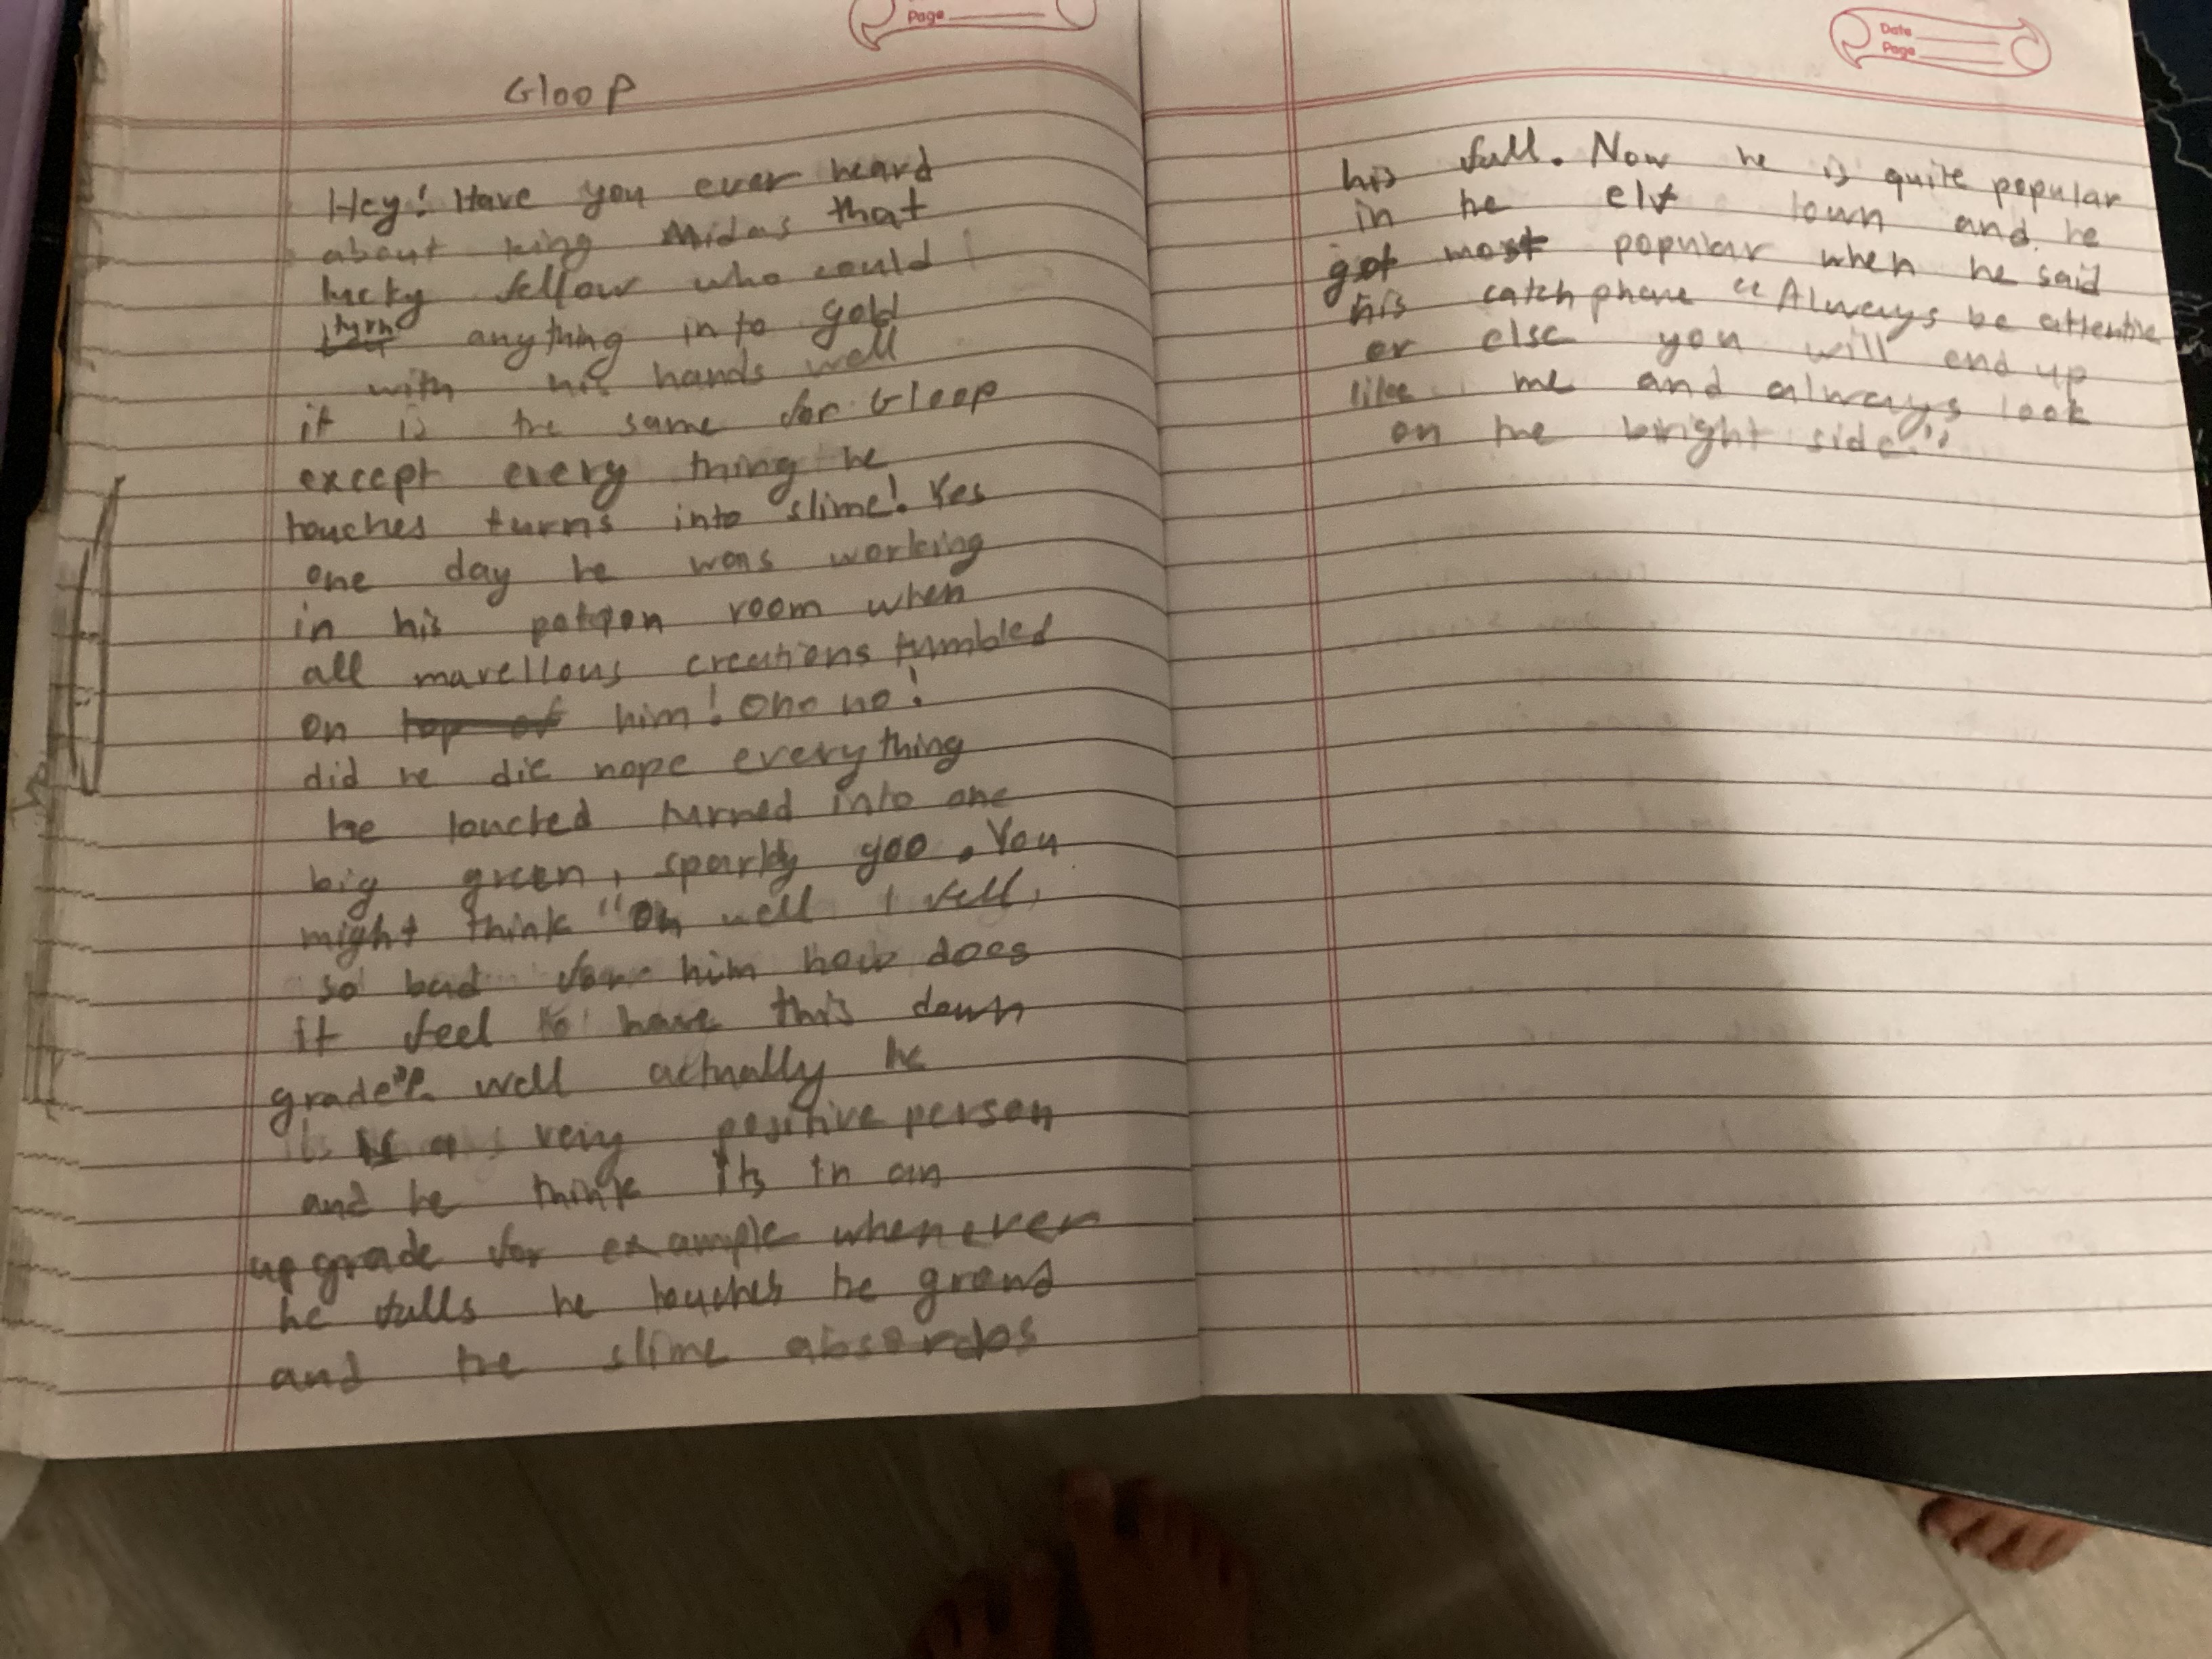 Page
Gloop
Hey! Have you ever heard
about king Midas that
lucky fellow who could
turn anything in to gold
with his hands well
it is the same for Gloop
except every thing he
touches turns into slime! Yes
one day he was working
in his potion room when
all marvellous creations tumbled
on top of him! Oho no!
did he die nope everything
he touched turned into one
big green, sparkly goo. You
might think "Oh well I fell,
so bad for him how does
it feel to have this down
grade"? well actually he
is a very positive person
and he think its in an
up grade for example when ever
he falls he touches he grond
and the slime absordbs
Date
Page
his fall. Now he is quite popular
in he elf town and he
got most popular when he said
his catch phare "Always be attentive
or else you will end up
like me and always look
on the bright side"